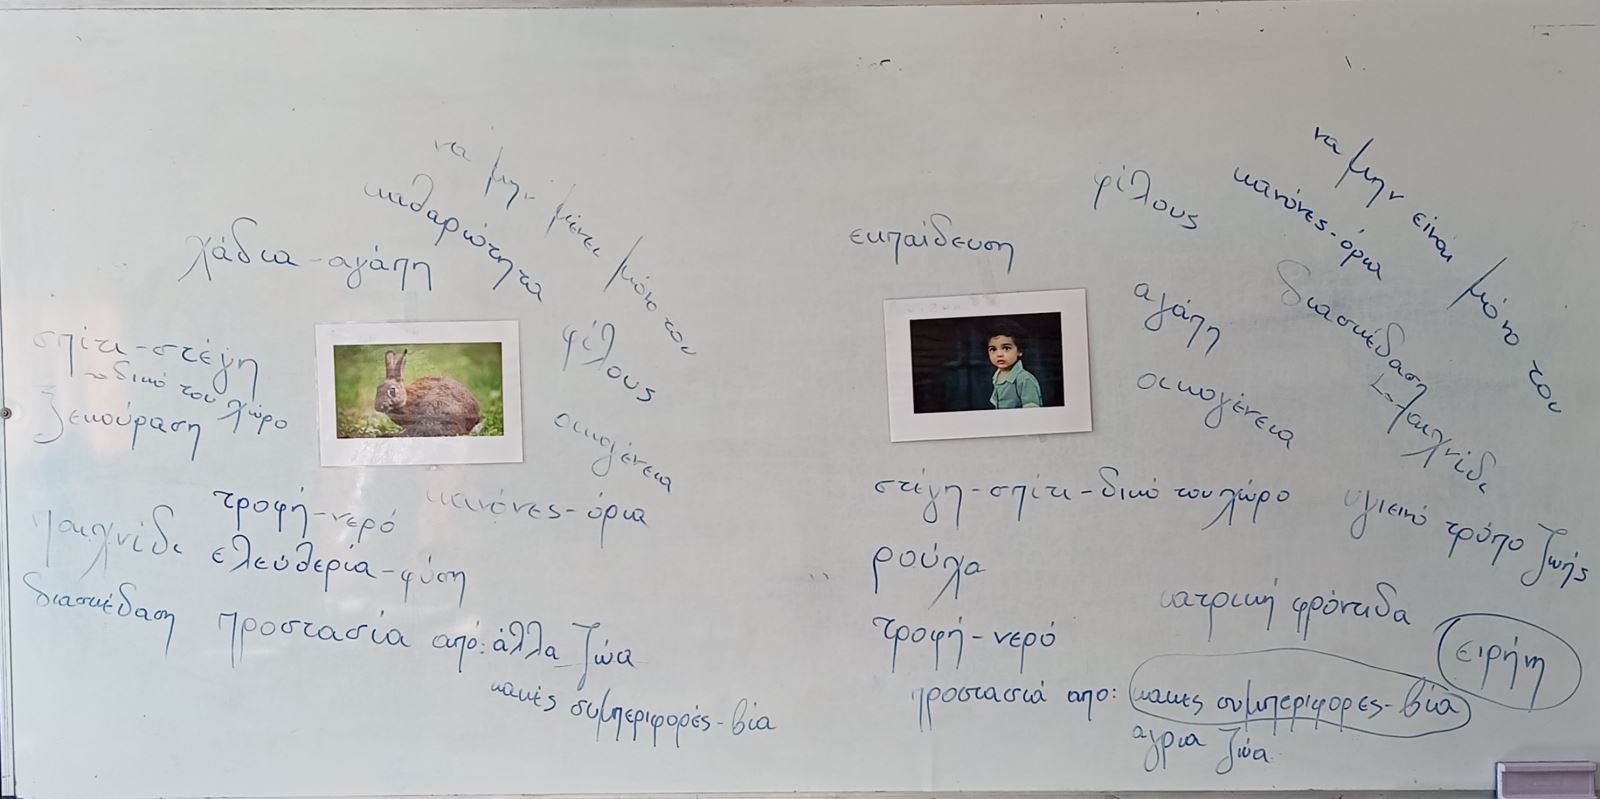 να μην μένει μόνο του
καθαριότητα
χάδια - αγάπη
σπίτι - στέγη
↳ δικό του χώρο
ξεκούραση
φίλους
οικογένεια
κανόνες - όρια
τροφή - νερό
παιχνίδι
ελευθερία - φύση
διασκέδαση
προστασία από: άλλα ζώα
κακές συμπεριφορές - βία
να μην είναι μόνο του
κανόνες - όρια
φίλους
εκπαίδευση
αγάπη
διασκέδαση
↳ παιχνίδι
οικογένεια
στέγη - σπίτι - δικό του χώρο
υγιεινό τρόπο ζωής
ρούχα
ιατρική φρόντιδα
τροφή - νερό
ειρήνη
προστασιά απο: κακες συμπεριφορες - βία
αγρια ζώα